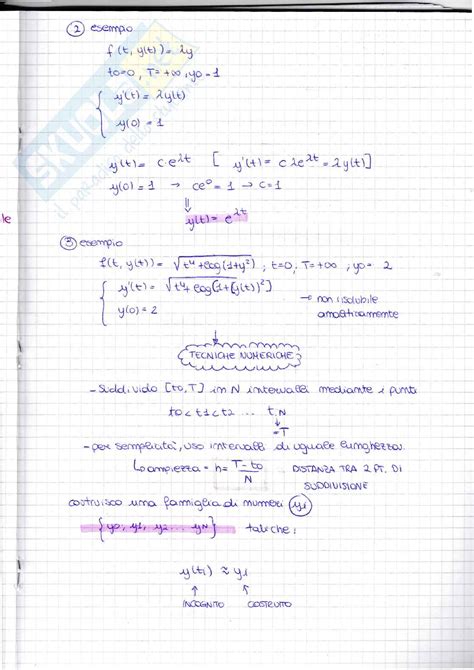 ② esempio
f(t, y(t)) = λy
t0=0, T=+∞, y0=1
{ y'(t) = λy(t)
y(0) = 1
y'(t) = c·e^λt [ y'(t) = cλe^λt = λy(t)]
y(0) = 1 → ce⁰ = 1 → c = 1
⇓
y(t) = e^λt
③ esempio
f(t, y(t)) = √t⁴+log(1+y²) ; t=0, T=+∞, y0 = 2
{ y'(t) = √t⁴+log[1+(y(t))²]
y(0) = 2
→ non risolubile
analiticamente
⇓
TECNICHE NUMERICHE
- Suddivido [t0,T] in N intervalli mediante i punti
t0 < t1 < t2 ... tN
↓
=T
- per semplicità, uso intervalli di uguale lunghezza.
↳ ampiezza = h = T-t0/N DISTANZA TRA 2 PT. DI
SUDDIVISIONE
costruisco una famiglia di numeri yi
{y0, y1, y2 ... yN} tali che:
y(ti) ≈ yi
↑ ↑
INCOGNITO COSTRUITO
le
SKUOLA.net
il paradiso dello studente